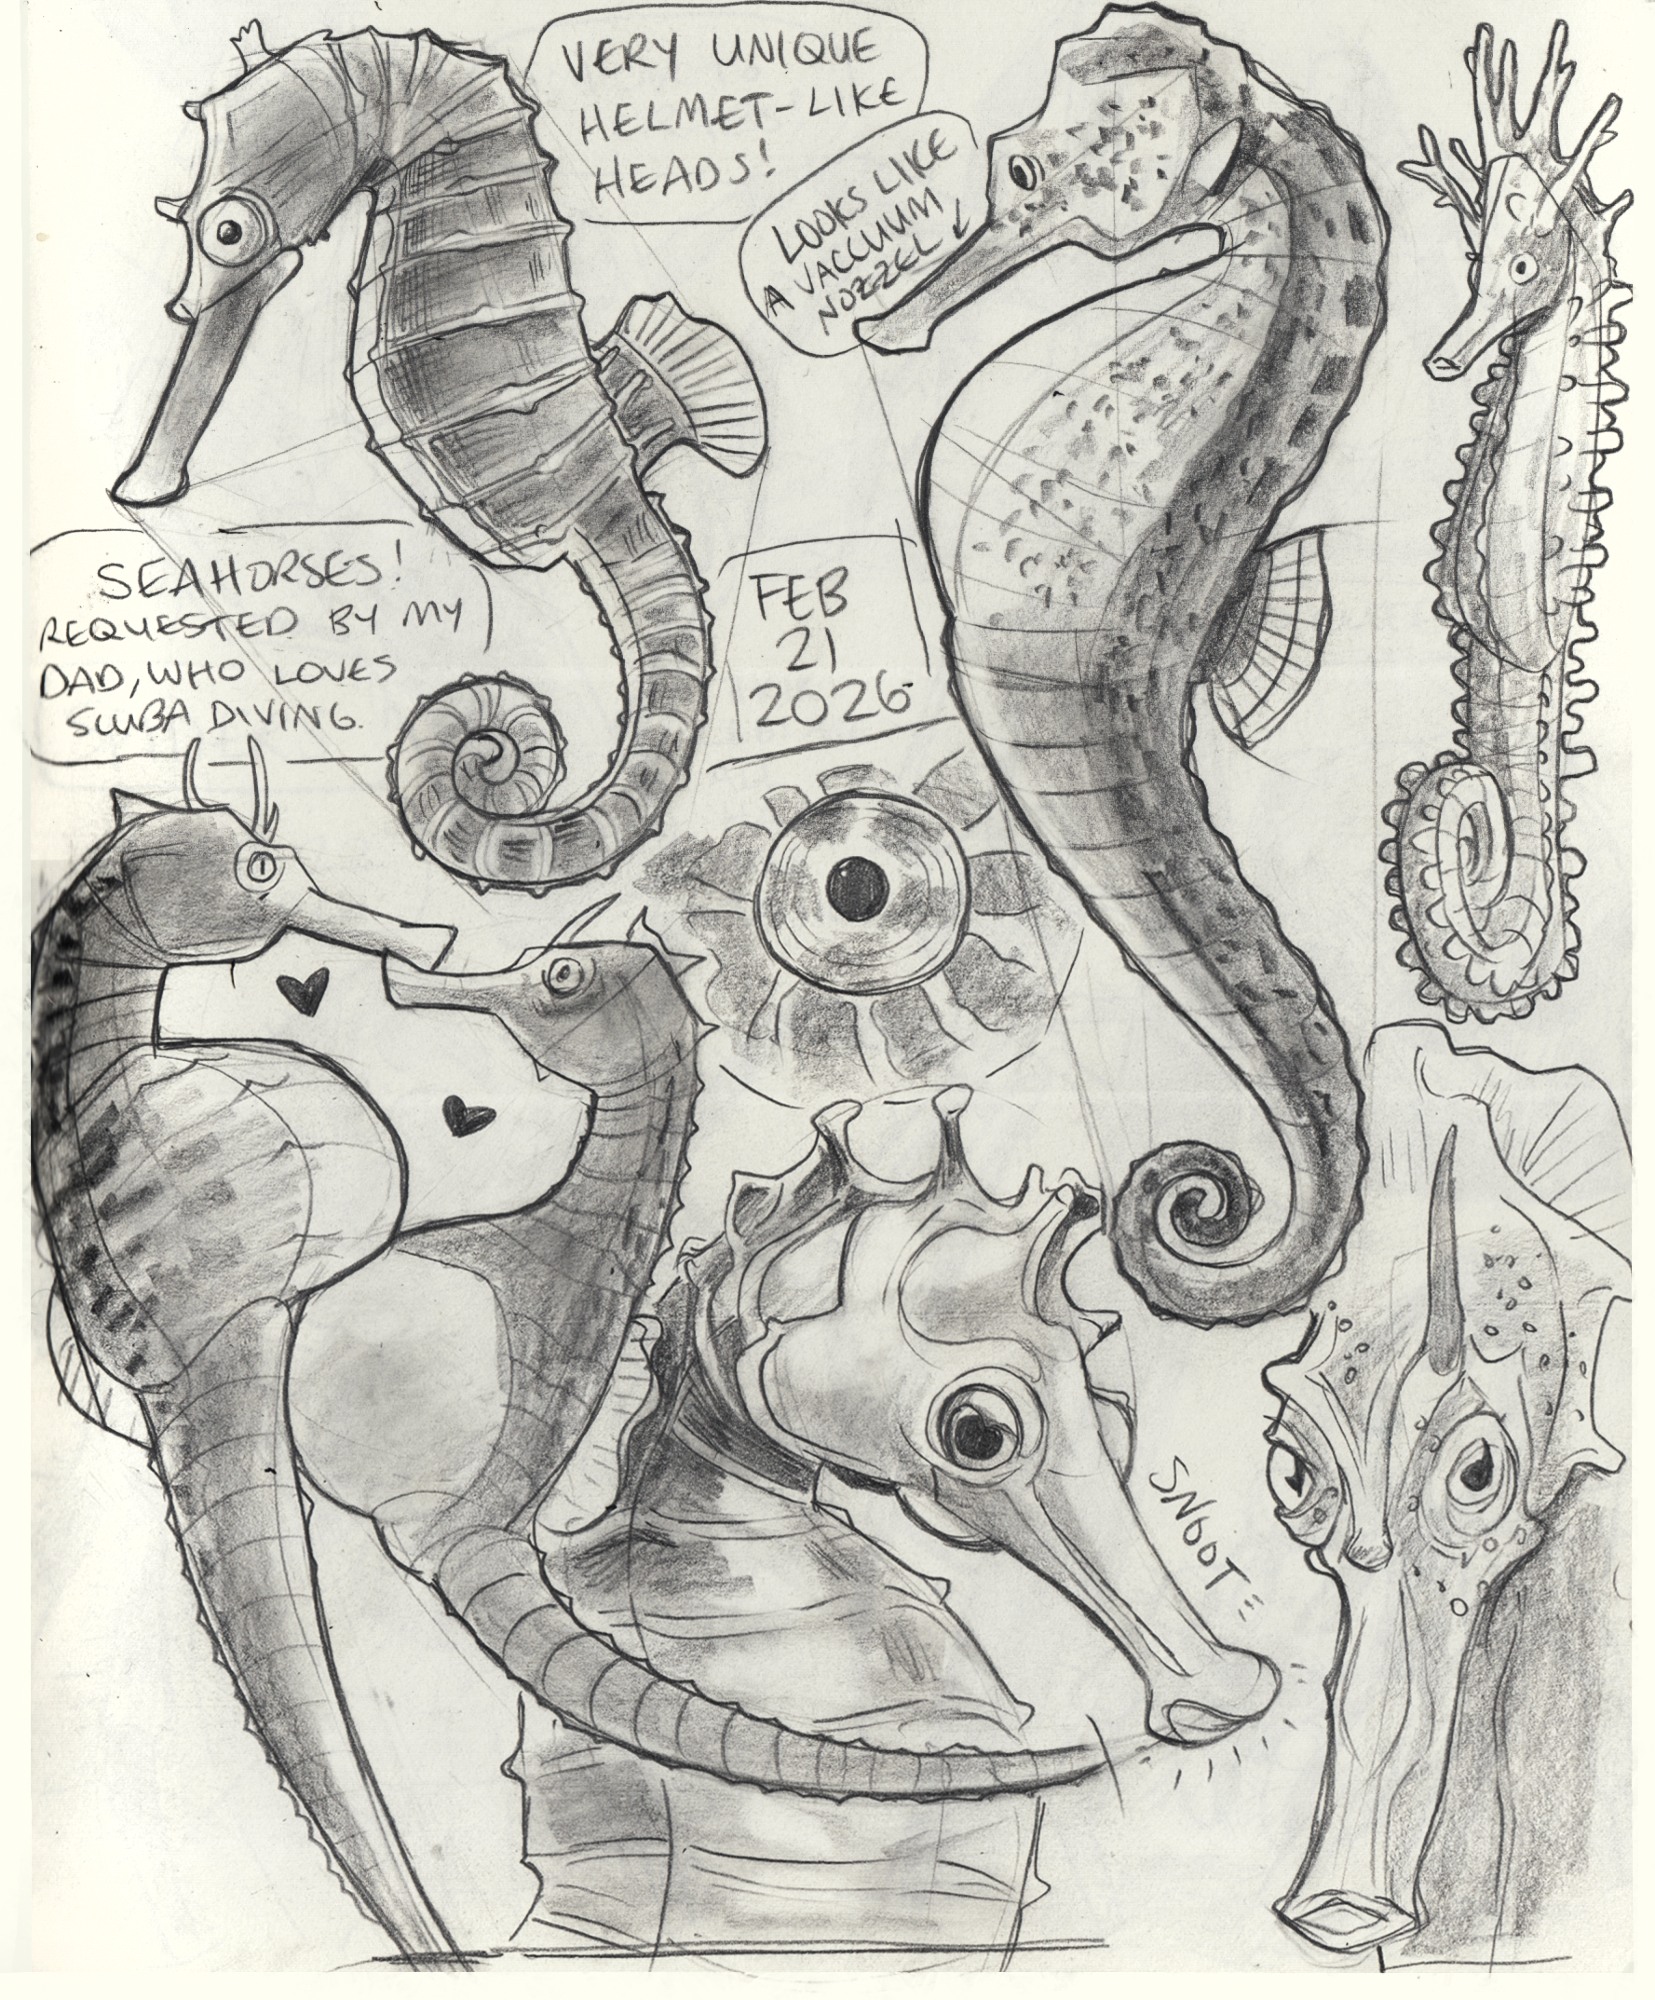 VERY UNIQUE
HELMET-LIKE
HEADS!
LOOKS LIKE
A VACCUUM
NOZZEL
SEAHORSES!
REQUESTED BY MY
DAD, WHO LOVES
SCUBA DIVING.
FEB
21
2026
SNOOT